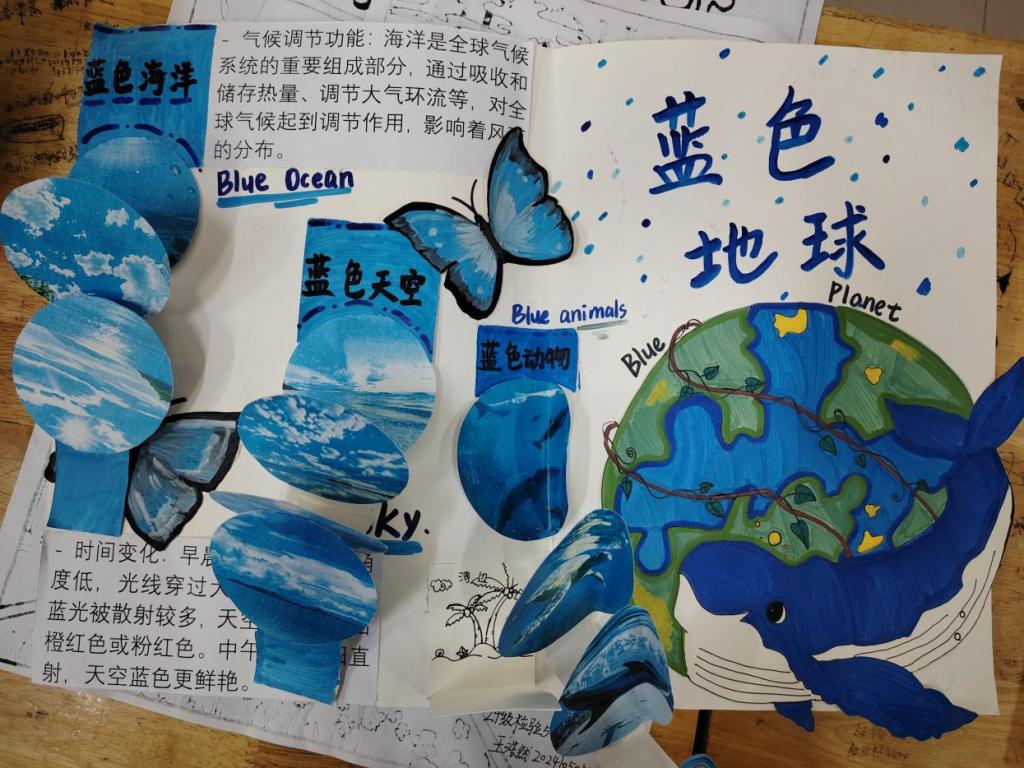 蓝色海洋
- 气候调节功能：海洋是全球气候
系统的重要组成部分，通过吸收和
储存热量、调节大气环流等，对全
球气候起到调节作用，影响着风
的分布。
Blue Ocean
蓝色天空
Blue animals
蓝色动物
ky.
- 时间变化：早晨
度低，光线穿过大
蓝光被散射较多，天
橙红色或粉红色。中午
直
射，天空蓝色更鲜艳。
蓝色
地球
Blue Planet